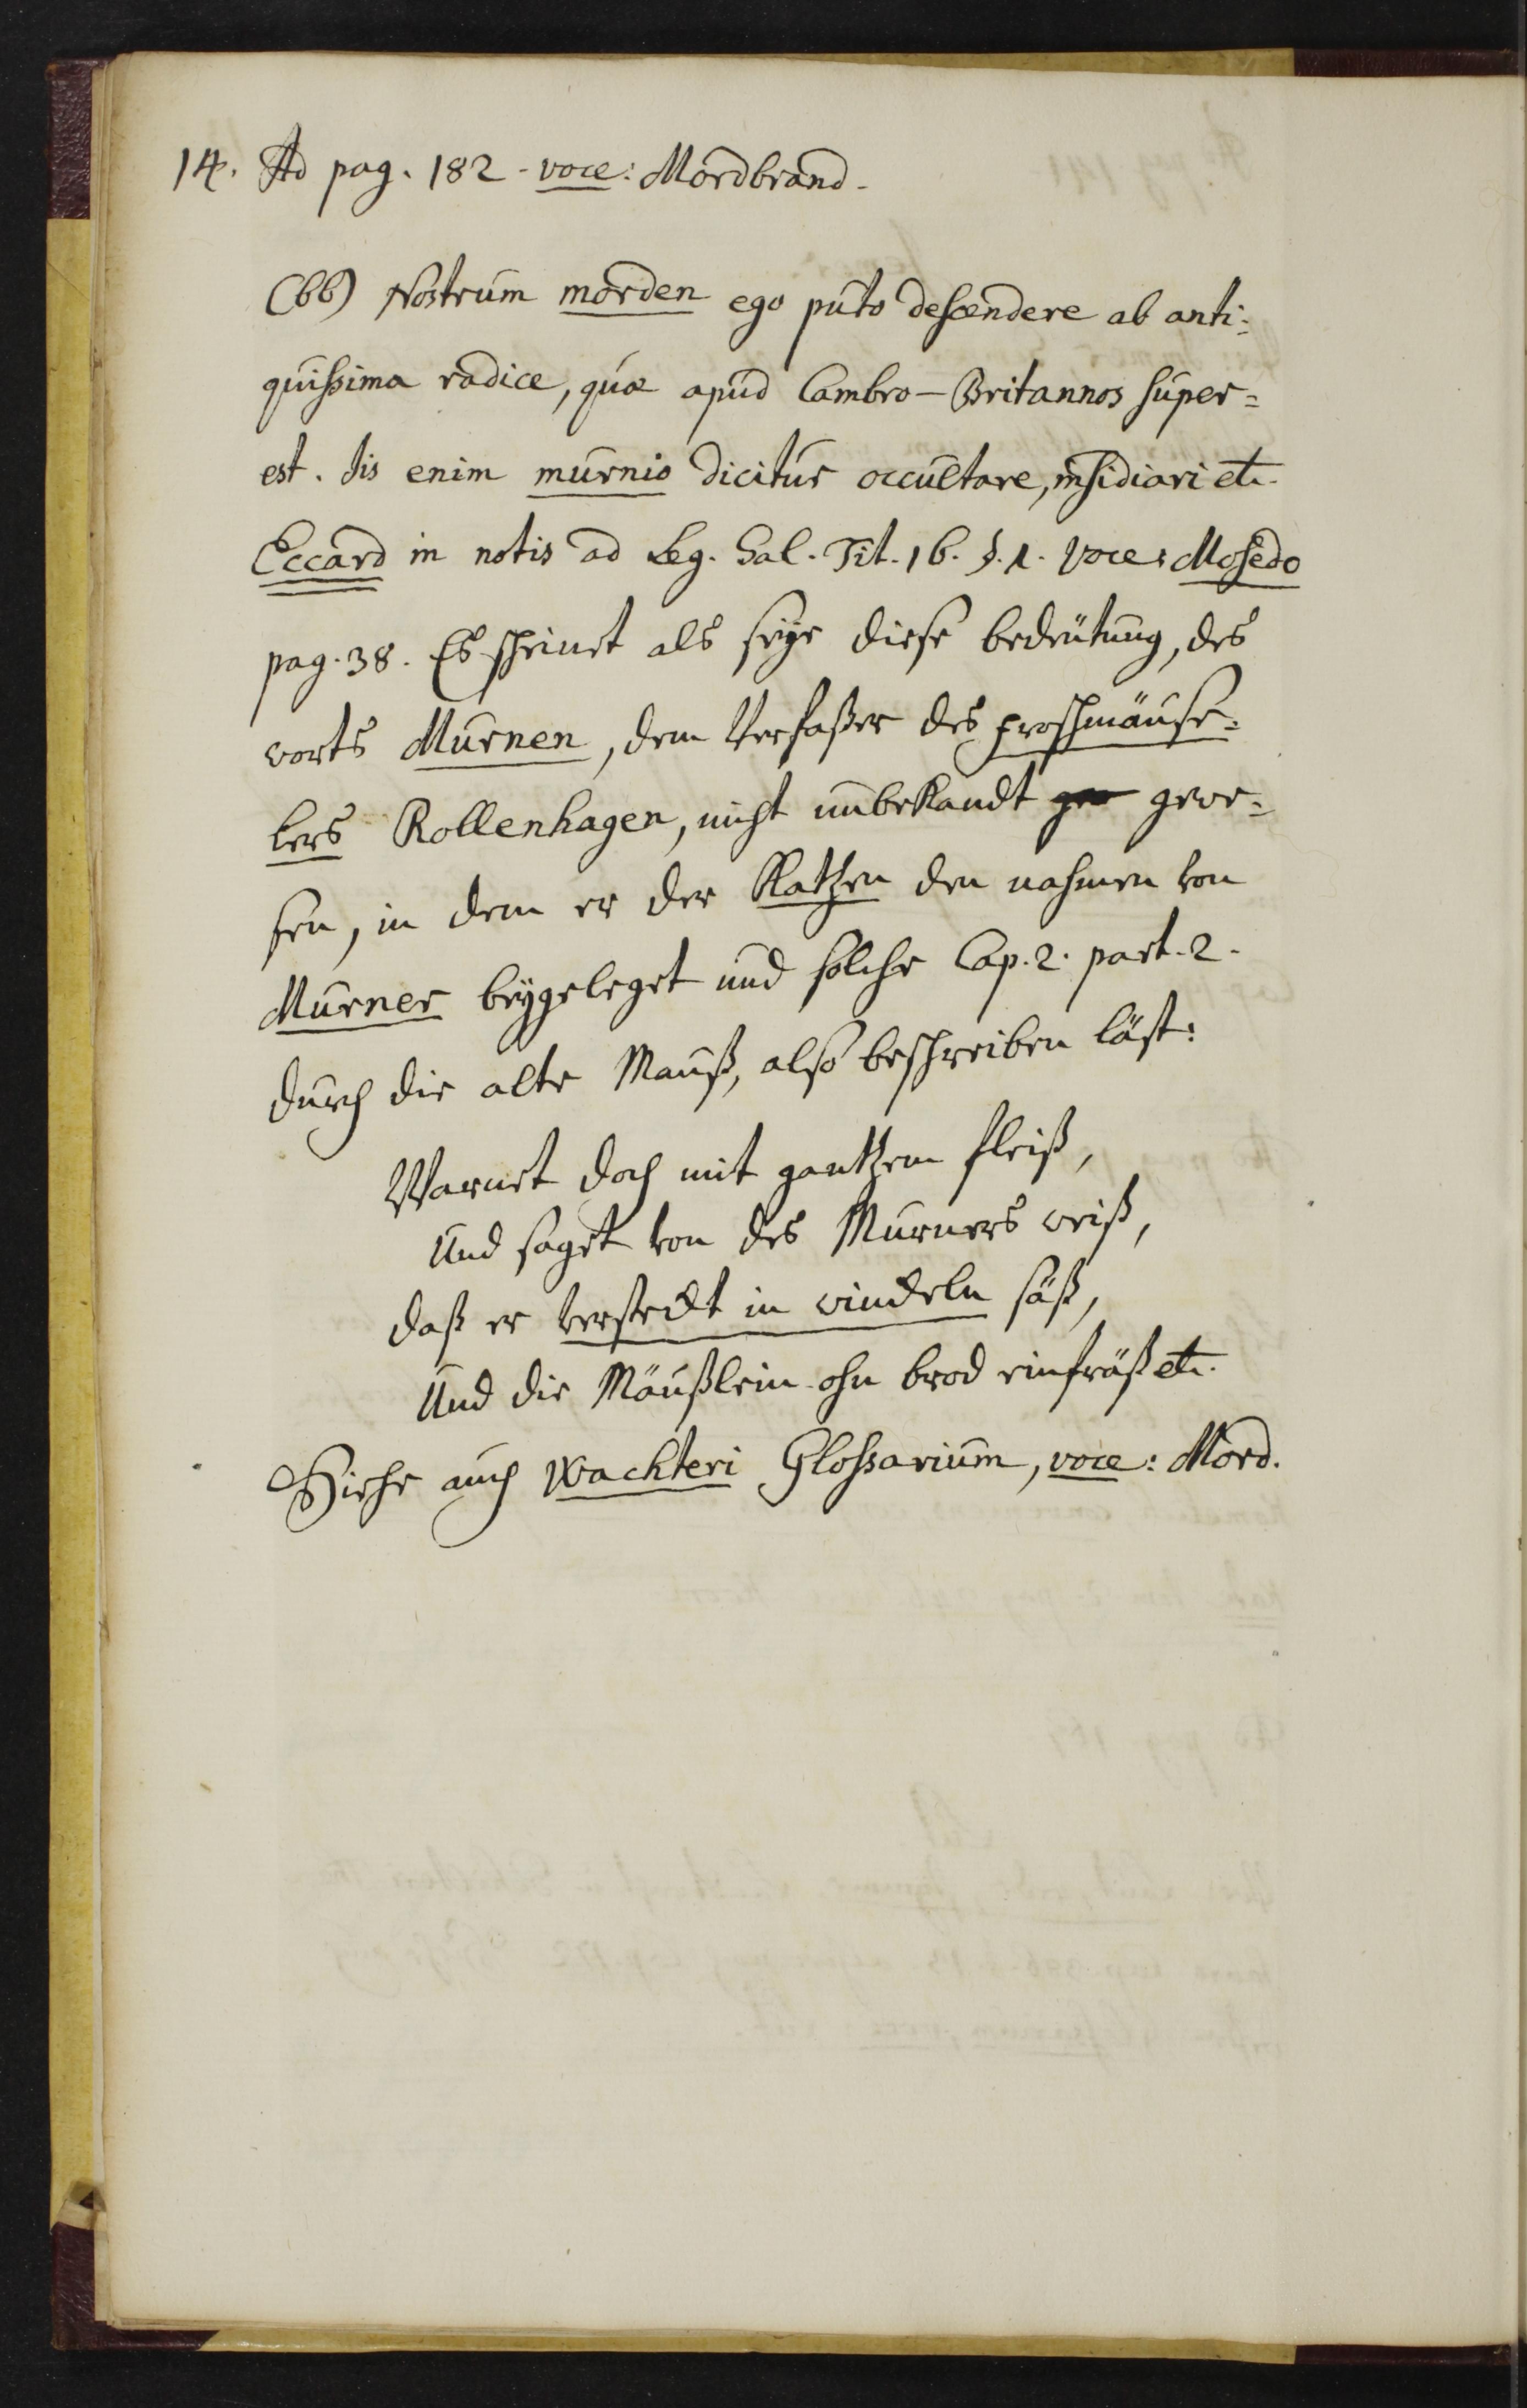 14. Ad pag. 182 - voce: Mordbrand.
(bb) Nostrum morden ego puto descendere ab anti-
quissima radice, quæ apud Cambro-Britannos super-
est. his enim murnio dicitur occultare, insidiari etc.
Eccard in notis ad Leg. Sal. Tit. 16. §. 1. voce: Mosedo
pag. 38. Es scheinet als seÿe diese bedeütung, des
worts Murnen, dem Verfaßer des froschmäuse-
lers Rollenhagen, nicht unbekandt gewe-
sen, in dem er der Katzen den nahmen von
Murner beÿgeleget und solche Cap. 2. part. 2.
durch die alte Mauß, also beschreiben läst:
Warnet doch mit gantzem fleiß,
Und saget von des Murners weiß,
daß er versteckt in windeln säß,
Und die Mäußlein ohn brod einfräß etc.
Siehe auch Wachteri Glossarium, voce: Mord.